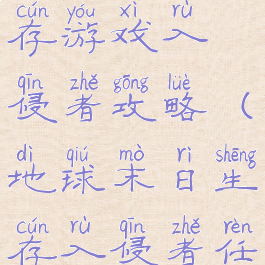 cún yóu xì rù
存游戏入
qīn zhě gōng lüè
侵者攻略（
dì qiú mò rì shēng
地球末日生
cún rù qīn zhě rèn
存入侵者任